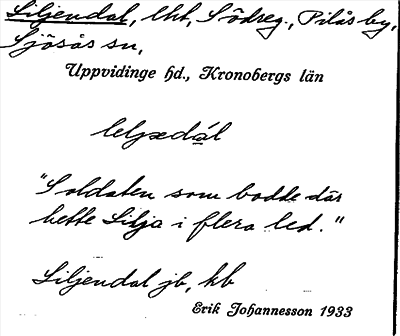 Liljendal, lht, Södreg., Pilås by,
Sjösås sn,
Uppvidinge hd., Kronobergs län
leljædál
"Soldaten som bodde där
hette Lilja i flera led."
Liljendal jb, kb
Erik Johannesson 1933